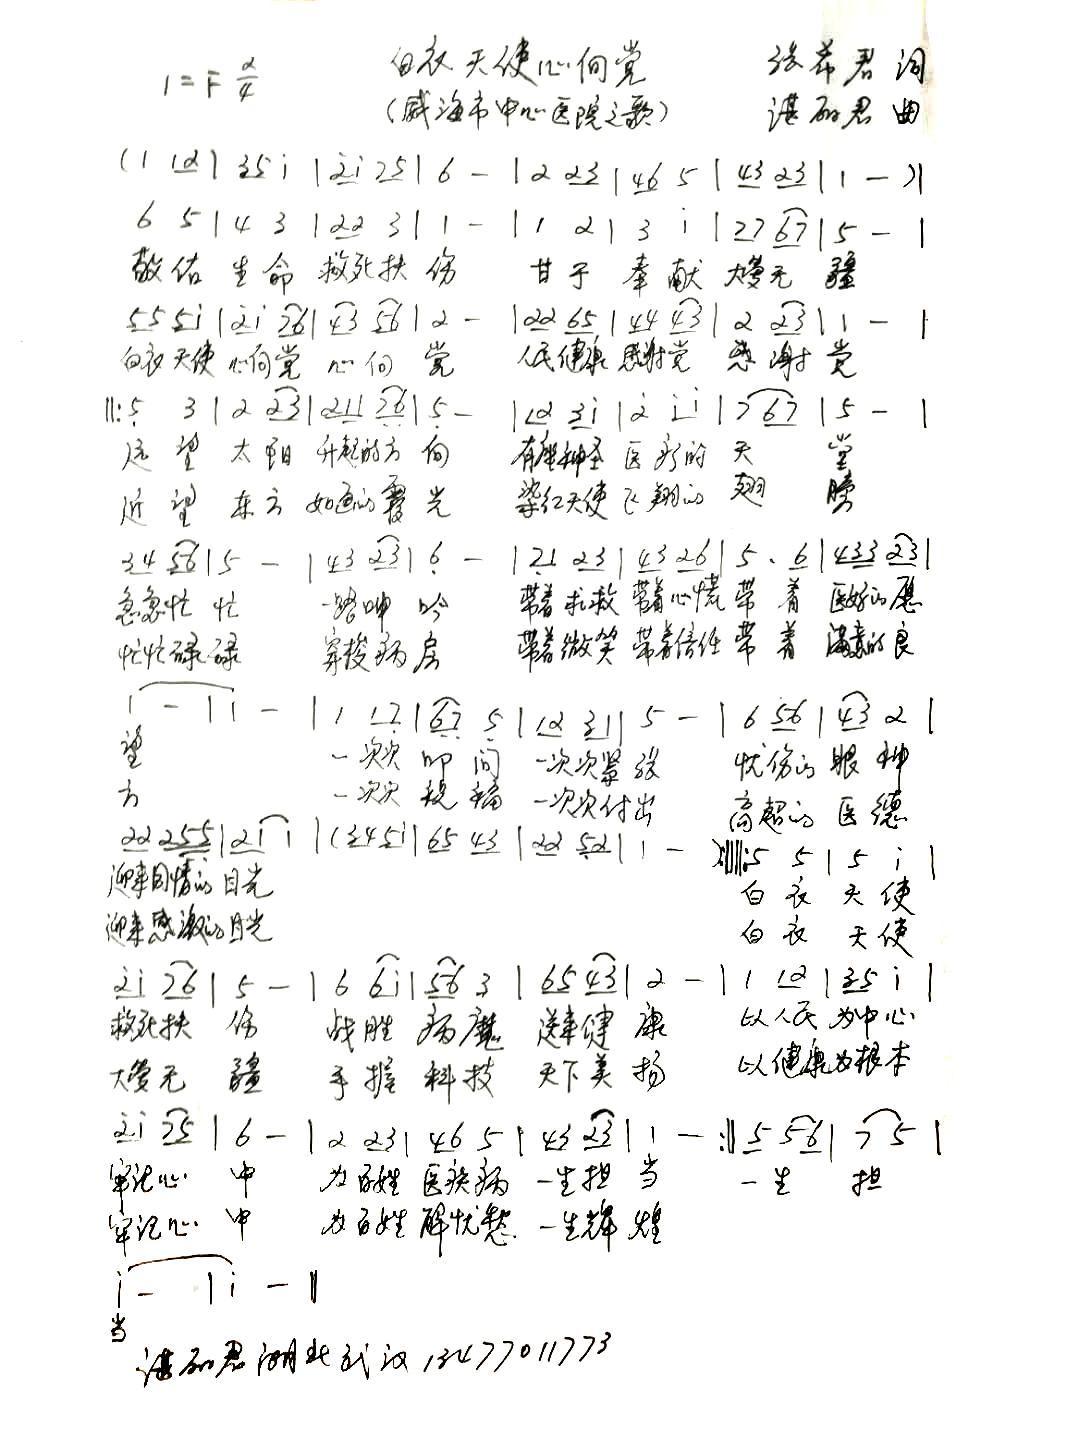 1=F 2/4 白衣天使心向党 张希君 词
(威海市中心医院之歌) 谌丽君 曲
(1 12 | 35 i | 2i 75 | 6 - | 2 23 | 46 5 | 43 23 | 1 - )|
6 5 | 4 3 | 22 3 | 1 - | 1 2 | 3 i | 27 67 | 5 - |
敬佑 生命 救死扶 伤 甘于 奉献 大爱无 疆
55 5i | 2i 76 | 43 56 | 2 - | 22 65 | 44 43 | 2 23 | 1 - |
白衣天使 心向党 心向 党 人民健康 感谢党 感谢 党
||: 5 3 | 2 23 | 211 76 | 5 - | 12 3i | 2 ii | 7 67 | 5 - |
远望 太阳 升起的方 向 有座神圣 医疗的 天 堂
近望 东方 如画的霞 光 染红天使 飞翔的 翅 膀
34 56 | 5 - | 43 23 | 6 - | 21 23 | 43 26 | 5 . 6 | 433 23 |
急急忙 忙 一路呻 吟 带着求救 带着心慌 带 着 医好的愿
忙忙碌 碌 穿梭病 房 带着微笑 带着信任 带 着 满意的良
i - | i - | 1 17 | 67 5 | 12 31 | 5 - | 6 56 | 43 2 |
望 一次次 叩问 一次次紧 张 忧伤的 眼神
方 一次次 祝福 一次次付 出 高超的 医德
22 255 | 2i i | (345i | 65 43 | 22 52 | 1 - ):||||: 5 5 | 5 i |
迎来同情的 目光 白衣 天使
迎来感激的 目光 白衣 天使
2i 76 | 5 - | 6 6i | 56 3 | 65 43 | 2 - | 1 12 | 35 i |
救死扶 伤 战胜 病魔 送来健 康 以人民 为中心
大爱无 疆 手握 科技 天下美 扬 以健康 为根本
2i 75 | 6 - | 2 23 | 46 5 | 43 23 | 1 - :|| 5 56 | 7 5 |
牢记心 中 为百姓 医疾病 一生担 当 一生 担
牢记心 中 为百姓 解忧愁 一生辉 煌
i - | i - ||
当
谌丽君湖北武汉13477011773